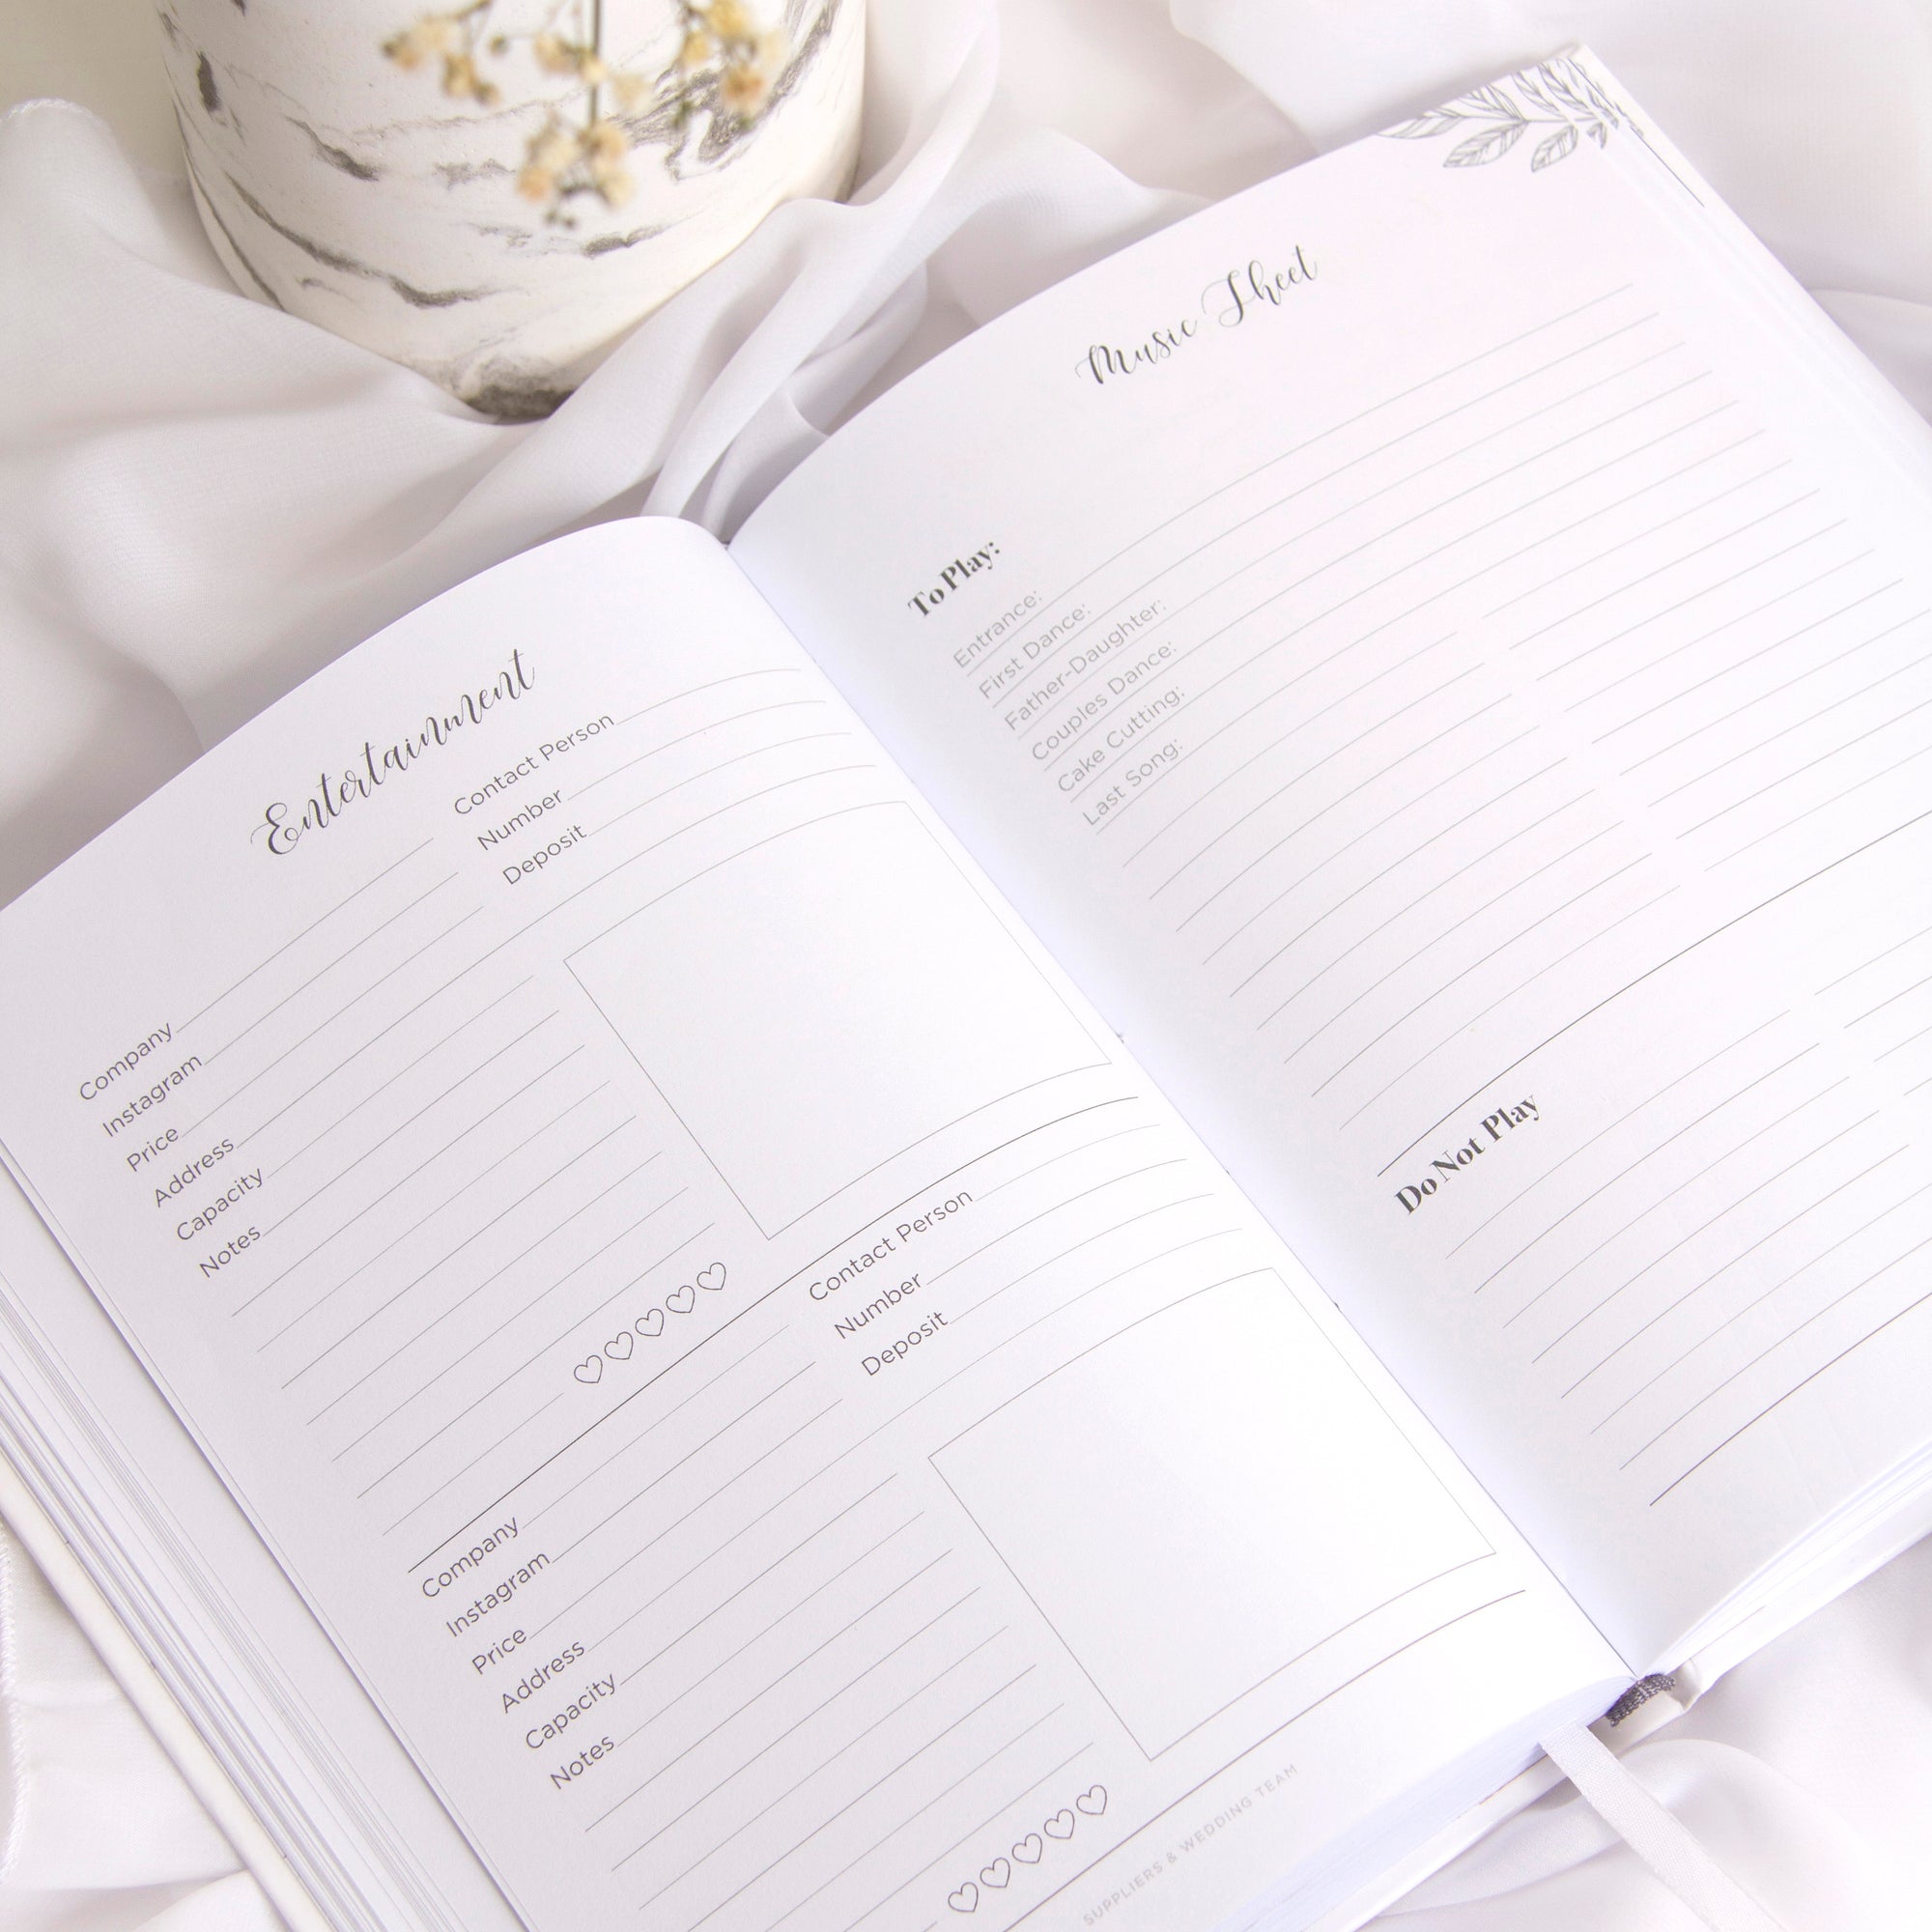 Entertainment
Company
Contact Person
Instagram
Number
Price
Deposit
Address
Capacity
Notes
Company
Contact Person
Instagram
Number
Price
Deposit
Address
Capacity
Notes
SUPPLIERS & WEDDING TEAM
Music Sheet
To Play:
Entrance:
First Dance:
Father-Daughter:
Couples Dance:
Cake Cutting:
Last Song:
Do Not Play